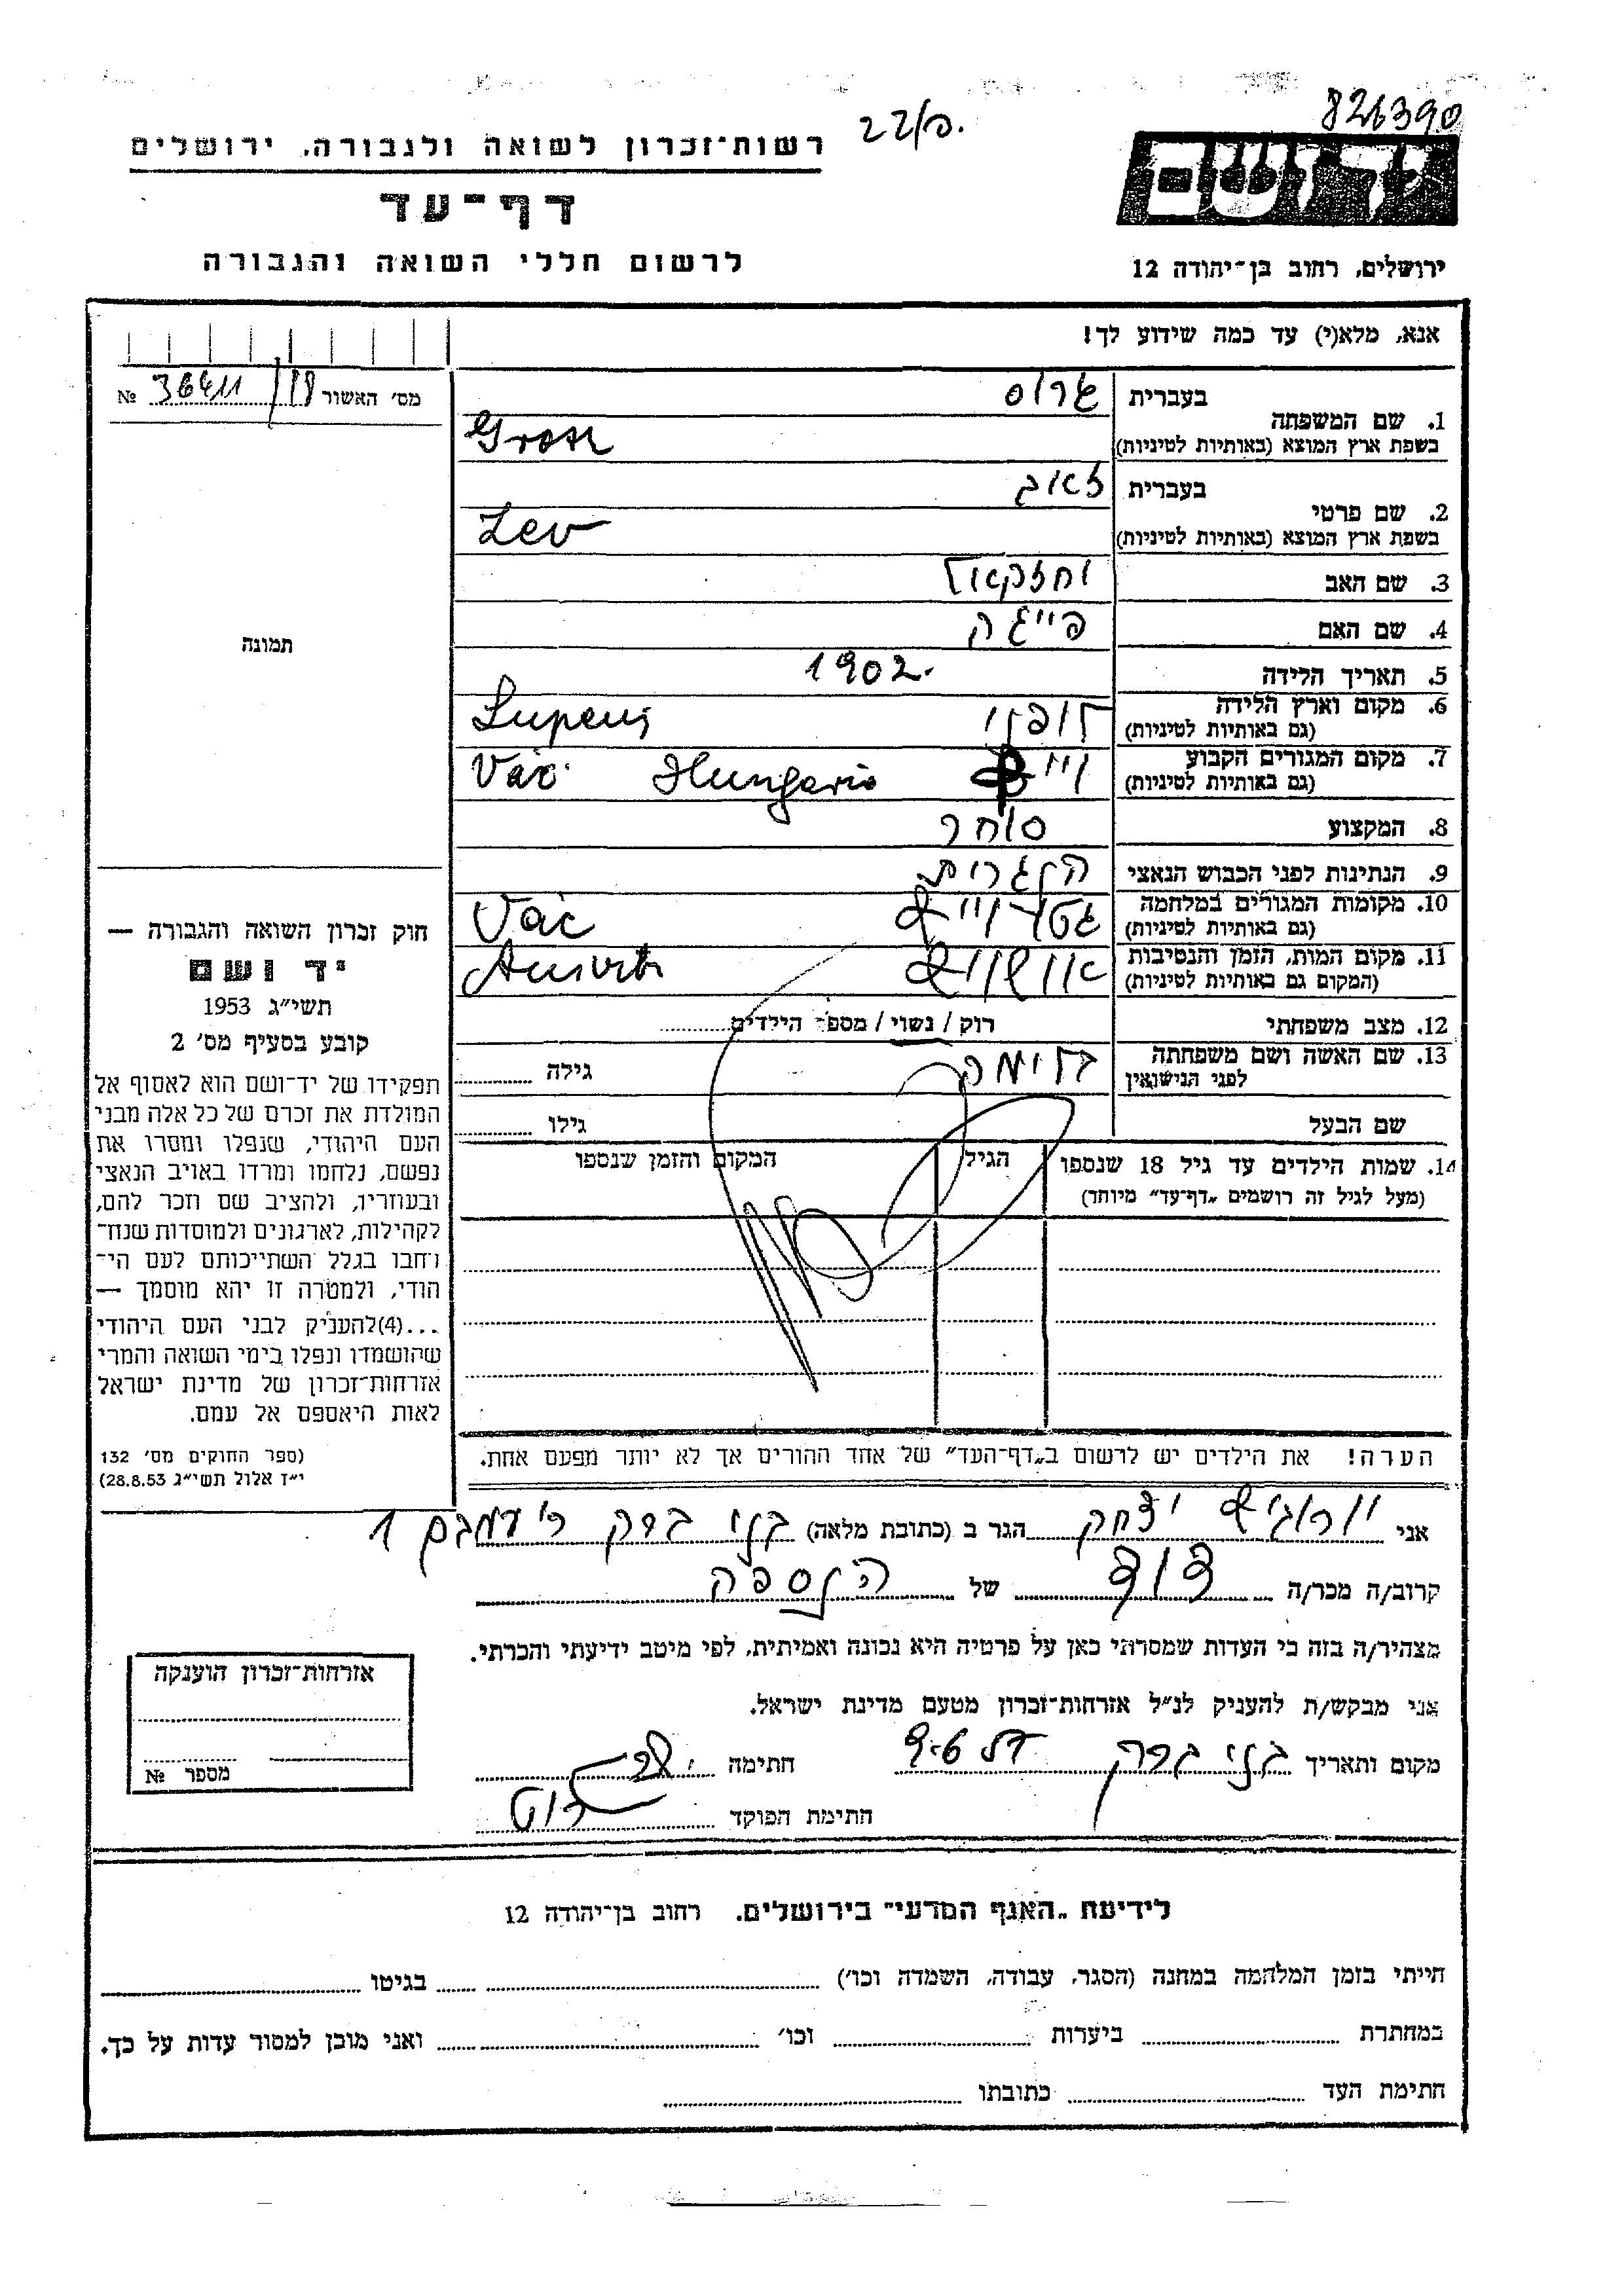 826390
22/פ.
יד ושם
רשות־זכרון לשואה ולגבורה, ירושלים
דף־עד
לרשום חללי השואה והגבורה
ירושלים, רחוב בן־יהודה 12
אנא, מלא(י) עד כמה שידוע לך!
מס׳ האשור № 36411
בעברית גרוס
1. שם המשפחה
בשפת ארץ המוצא (באותיות לטיניות) Gross
בעברית
2. שם פרטי
בשפת ארץ המוצא (באותיות לטיניות) Lev
3. שם האב יחזקאל
4. שם האם פייגה
5. תאריך הלידה 1902.
6. מקום וארץ הלידה לופני Lupeni
(גם באותיות לטיניות)
7. מקום המגורים הקבוע Vác Hungaria
(גם באותיות לטיניות)
8. המקצוע סוחר
9. הנתינות לפני הכבוש הנאצי הונגרית
10. מקומות המגורים במלחמה גטו וייץ Vác
(גם באותיות לטיניות)
11. מקום המות, הזמן והנסיבות אושוויץ
(המקום גם באותיות לטיניות)
12. מצב משפחתי רוק / נשוי / מספר הילדים
13. שם האשה ושם משפחתה גילה
לפני הנישואין
שם הבעל גילו
14. שמות הילדים עד גיל 18 שנספו הגיל המקום והזמן שנספו
(מעל לגיל זה רושמים „דף־עד” מיוחד)
תמונה
חוק זכרון השואה והגבורה —
יד ושם
תשי״ג 1953
קובע בסעיף מס׳ 2
תפקידו של יד־ושם הוא לאסוף אל
המולדת את זכרם של כל אלה מבני
העם היהודי, שנפלו ומסרו את
נפשם, נלחמו ומרדו באויב הנאצי
ובעוזריו, ולהציב שם וזכר להם,
לקהילות, לארגונים ולמוסדות שנח־
רבו בגלל השתייכותם לעם הי־
הודי, ולמטרה זו יהא מוסמך —
...(4)להעניק לבני העם היהודי
שהושמדו ונפלו בימי השואה והמרי
אזרחות־זכרון של מדינת ישראל
לאות היאספם אל עמם.
(ספר החוקים מס׳ 132
י״ז אלול תשי״ג 28.8.53)
הערה! את הילדים יש לרשום ב„דף־העד” של אחד ההורים אך לא יותר מפעם אחת.
אני יצחק הגר ב (כתובת מלאה) בני ברק
קרוב/ה מכר/ה דוד של הנספה
מצהיר/ה בזה כי העדות שמסרתי כאן על פרטיה היא נכונה ואמיתית, לפי מיטב ידיעתי והכרתי.
אני מבקש/ת להעניק לנ״ל אזרחות־זכרון מטעם מדינת ישראל.
מקום ותאריך בני ברק חתימה
חתימת הפוקד
אזרחות־זכרון הוענקה
מספר №
לידיעת „האגף המדעי” בירושלים, רחוב בן־יהודה 12
חייתי בזמן המלחמה במחנה (הסגר, עבודה, השמדה וכו׳) בגיטו
במחתרת ביערות וכו׳ ואני מוכן למסור עדות על כך.
חתימת העד כתובתו